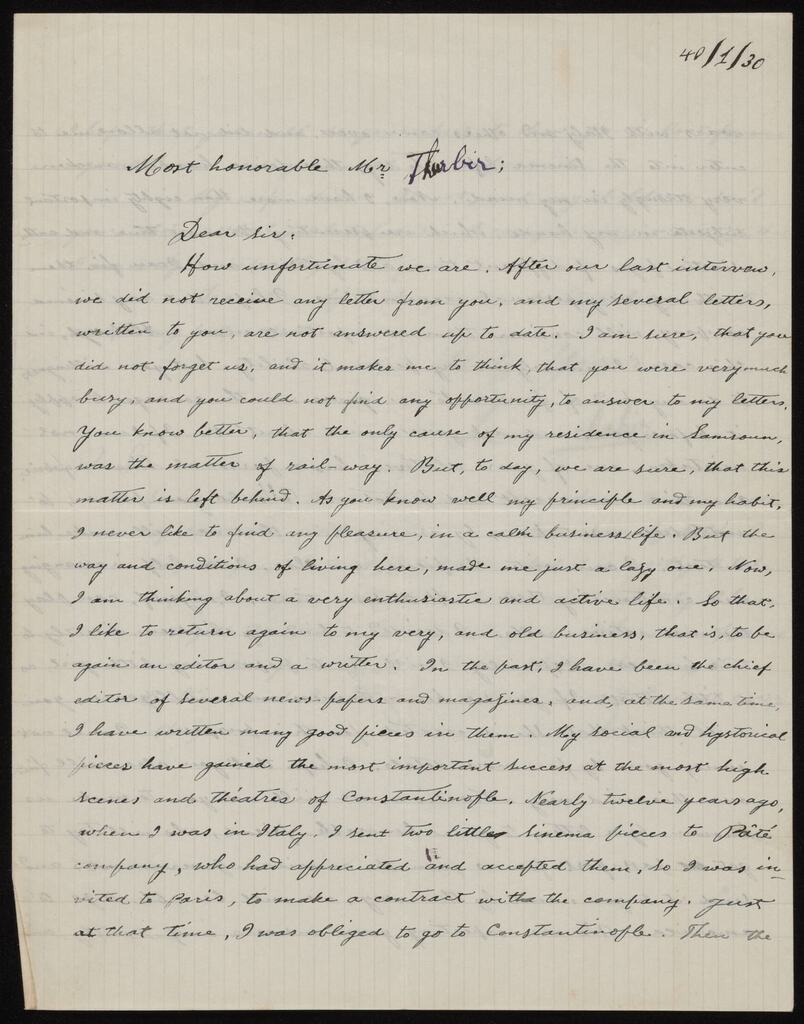 40/1/30
Most honorable Mr Thurbir;
Dear Sir:
How unfortunate we are. After our last interwew,
we did not receive any letter from you, and my several letters,
written to you, are not answered up to date. I am sure, that you
did not forget us, and it makes me to think, that you were very much
busy, and you could not find any opportunity, to answer to my letters.
You know better, that the only cause of my residence in Samsoun,
was the matter of rail-way. But, to day, we are sure, that this
matter is left behind. As you know well my principle and my habit,
I never like to find any pleasure, in a calm business life. But the
way and conditions of living here, made me just a lazy one. Now,
I am thinking about a very enthusiastic and active life. So that,
I like to return again to my very, and old business, that is, to be
again an editor and a writter. In the past, I have been the chief
editor of several news-papers and magazines, and, at the same time,
I have written many good pieces in them. My social and hystorical
pieces have gained the most important success at the most high
scenes and théatres of Constantinople. Nearly twelve years ago,
when I was in Italy. I sent two little sinema pieces to Pâté
company, who had appreciated and accepted them, so I was in-
vited to Paris, to make a contract with the company. Just
at that time, I was obliged to go to Constantinople. Then the